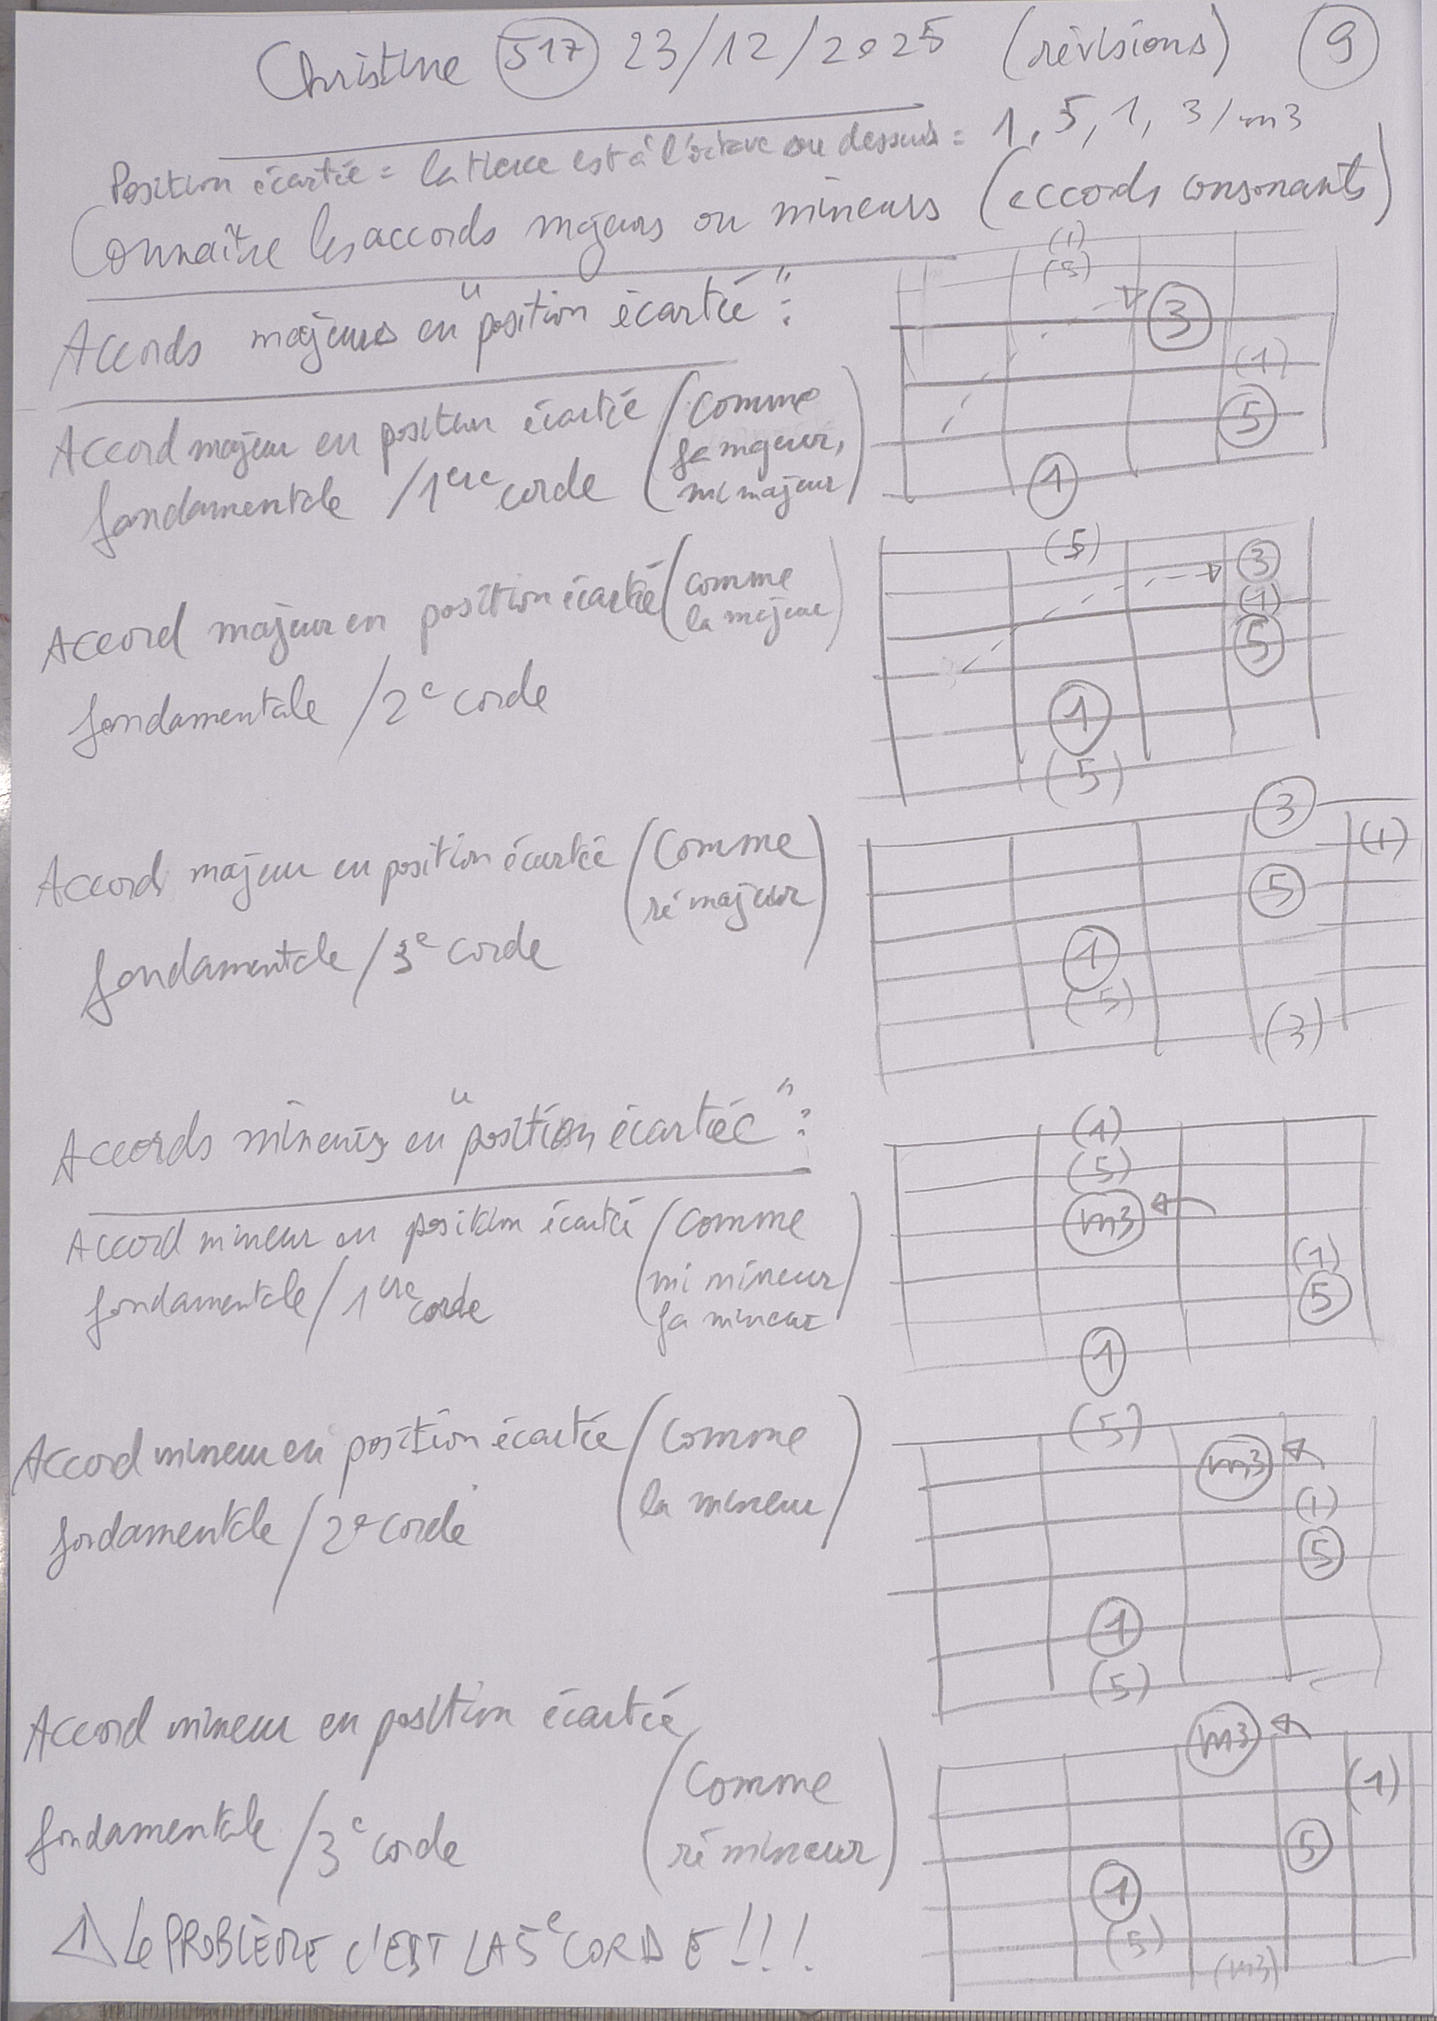 Christine 517 23/12/2025 (révisions) 9
Position écartée = la tierce est à l'octave au dessus = 1, 5, 1, 3/m3
Connaître les accords majeurs ou mineurs (accords consonants)
Accords majeurs en "position écartée":
(1)
(5)
3
(1)
5
1
Accord majeur en position écartée (comme
fa majeur,
fondamentale / 1ere corde mi majeur)
(5)
3
(1)
5
1
(5)
Accord majeur en position écartée (comme
la majeur)
fondamentale / 2e corde
3
(1)
5
1
(5)
(3)
Accord majeur en position écartée (comme
ré majeur)
fondamentale / 3e corde
Accords mineurs en "position écartée":
(1)
(5)
m3
(1)
5
1
Accord mineur en position écartée (comme
mi mineur
fondamentale / 1ere corde fa mineur)
(5)
m3
(1)
5
1
(5)
Accord mineur en position écartée (comme
la mineur)
fondamentale / 2e corde
m3
(1)
5
1
(5)
(m3)
Accord mineur en position écartée
(comme
fondamentale / 3e corde ré mineur)
Le PROBLÈME C'EST LA 5e CORDE!!!